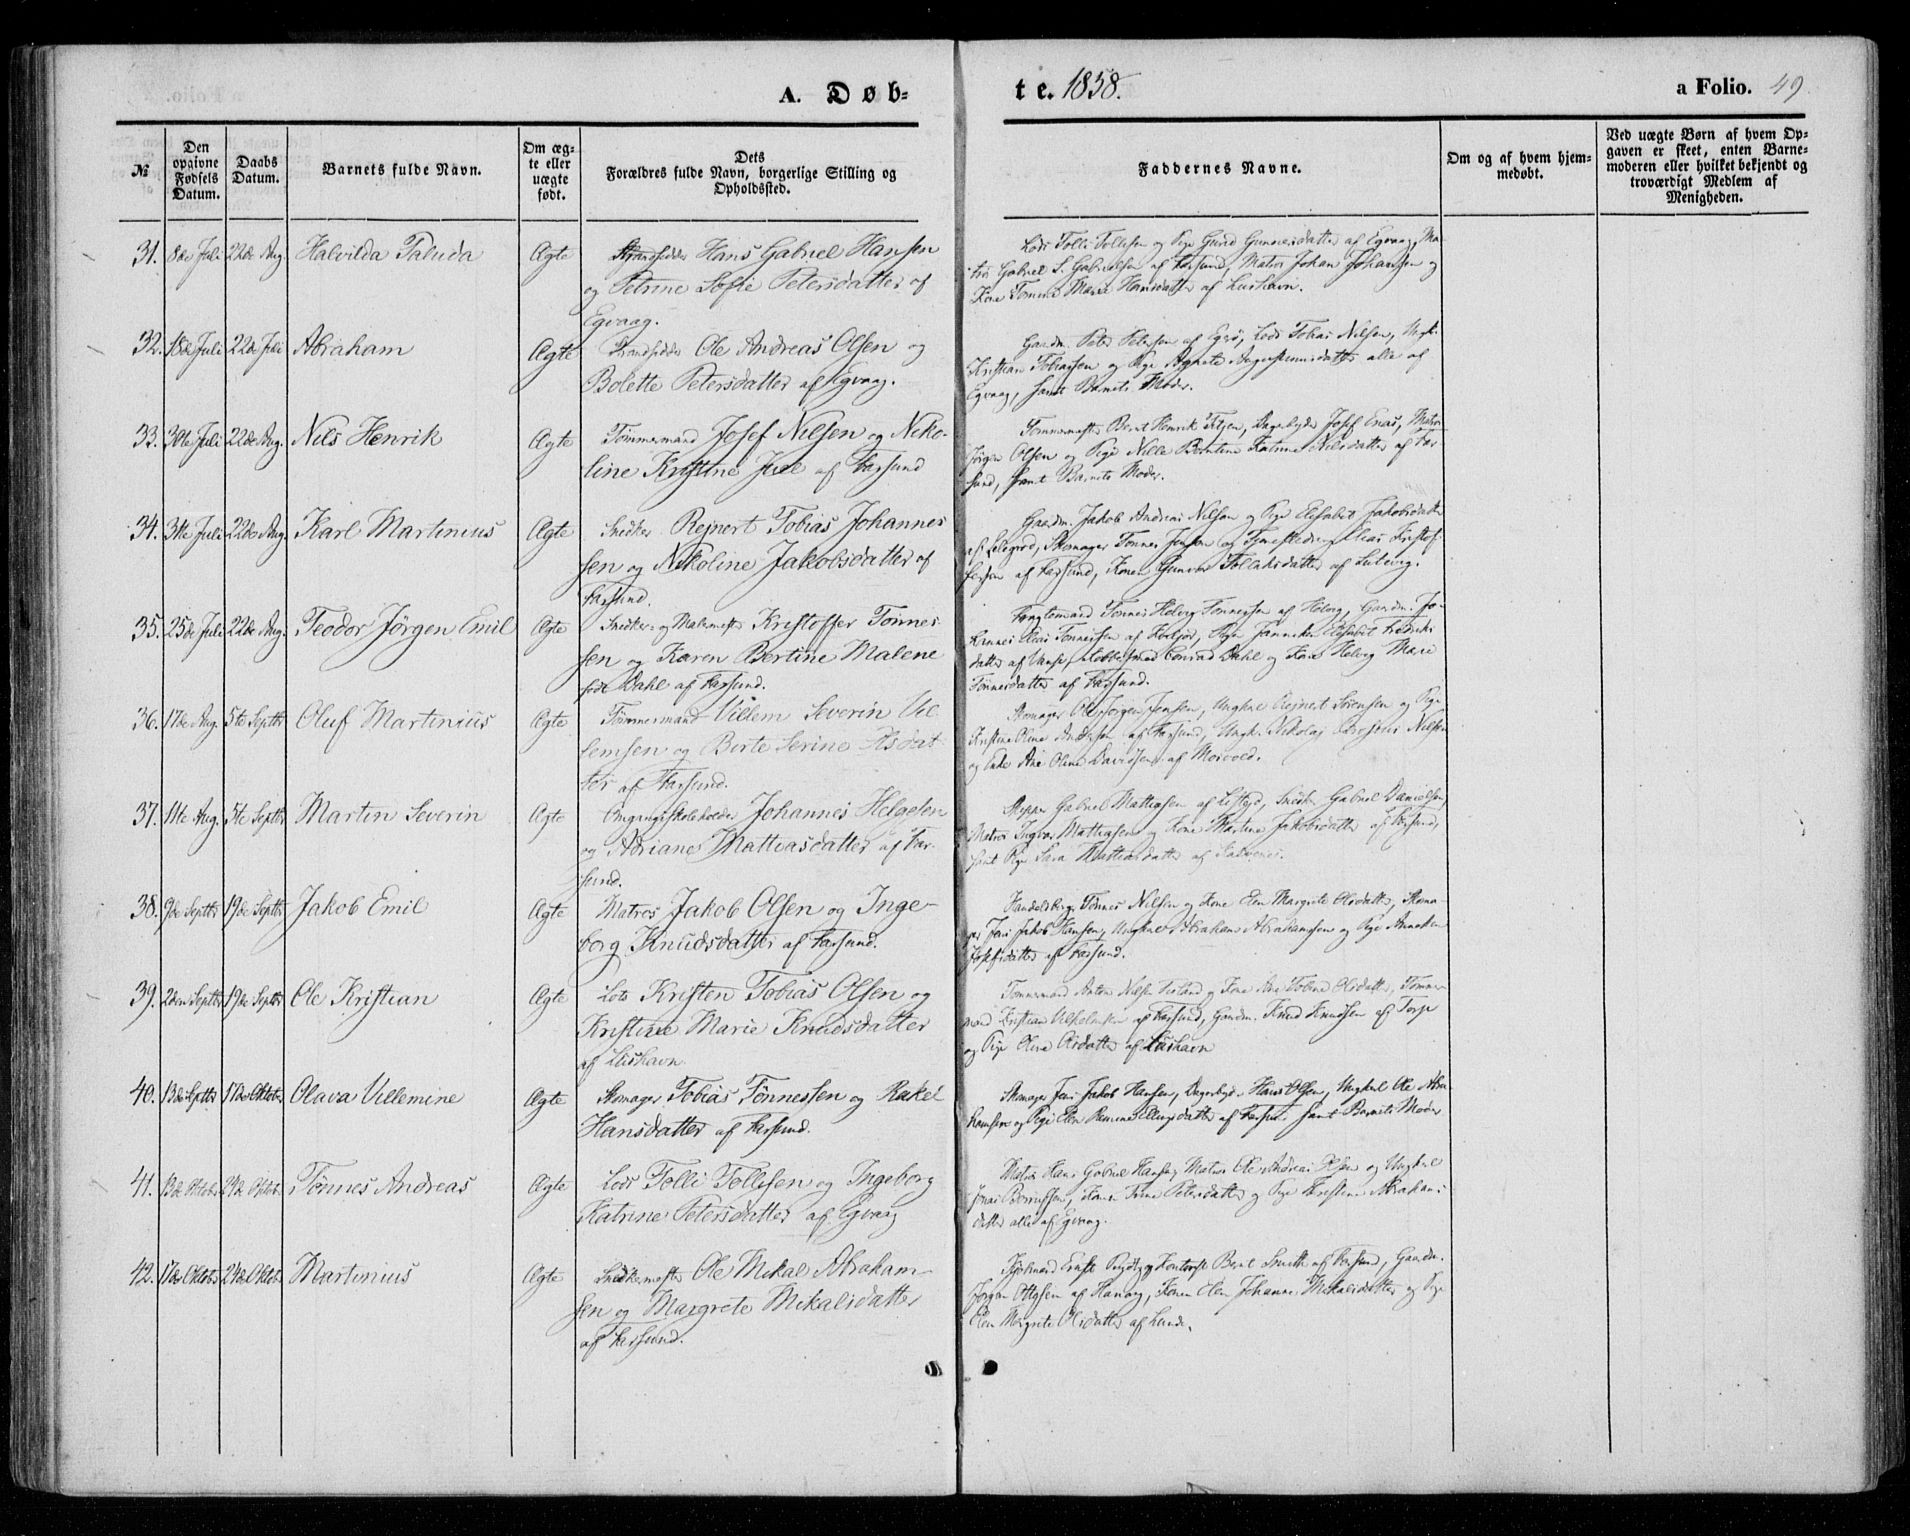 A. Døb-
te. 1858.
a Folio. 49
№
Den opgivne Fødsels Datum.
Daabs Datum.
Barnets fulde Navn.
Om ægte eller uægte født.
Dets
Forældres fulde Navn, borgerlige Stilling og
Opholdssted.
Faddernes Navne.
Om og af hvem hjemmedøbt.
Ved uægte Børn af hvem Opgaven er skeet, enten Barnemoderen eller hvilket bekjendt og troværdigt Medlem af Menigheden.
31. 8de Juli 22de Aug. Halvilda Taluda Ægte Strandsidder Hans Gabriel Hansen
og Petrine Sofie Petersdatter af
Egvaag.
Lods Tolli Tollisen og Pige Gurid Gunnersdatter af Egvaag, Ma-
tros Gabriel S. Gabrielsen af Farsund, Matros Johan Johansen og
Kone Tomine Marie Hansdatter af Lushavn.
32. 18de Juli 22de Juli Abraham Ægte Strandsidder Ole Andreas Olsen og
Bolette Petersdatter af Egvaag.
Gaardm. Peter Petersen af Egvaag, Lods Tobias Nilsen, Ungk.
Kristian Tobiassen og Pige Agnete Augustinusdatter alle af
Egvaag, samt Barnets Moder.
33. 30te Juli 22de Aug. Nils Henrik Ægte Tømmermand Josef Nilsen og Niko-
line Kristine Juel af Farsund
Tømmermester Bernt Henrik, Dagarbejder Josef Enas, Matros
Jørgen Olsen og Pige Nille Berntine Katrine Nilsdatter af Far-
sund, samt Barnets Moder.
34. 31te Juli 22de Aug. Karl Martinius Ægte Snedker Rejnert Tobias Johannes
sen og Nikoline Jakobsdatter af
Farsund.
Gaardm. Jakob Andreas Nilsen og Pige Elisabet Jakobsdatter
af, Skomager Tønnes Jensen og Elias Kristof-
fersen af Farsund, Konen Gunvor Tollaksdatter af
35. 25de Juli 22de Aug. Teodor Jørgen Emil Ægte Snedker- og Malermester Kristoffer Tønnes
sen og Karen Bertine Malene
født Dahl af Farsund.
Tønnes Helvig Tønnessen af Helvig, Gaardm. Jo-
hannes Elias Tønnessen af, Pige Janniken Elisabet Fredriks
datter af Vanse, Conrad Dahl og Kone Helvig Marie
Tønnesdatter af Farsund.
36. 17de Aug. 5te Septbr Oluf Martinius Ægte Tømmermand Villem Severin Vil
lemsen og Berte Serine Olsdat
ter af Farsund.
Skomager Ole Jørgen Jensen, Ungkarl Rejnert Sørensen og Pige
Kristine Oline Andersen af Farsund, Ungk. Nikolaj Nilsen
og Enke Ane Oline Davidsen af
37. 11te Aug. 5te Septbr Martin Severin Ægte Omgangsskoleholder Johannes Helgesen
og Adriane Mattiasdatter af Far-
sund.
Skipper Gabriel Mattiasen af, Snedker Gabriel Danielsen,
Matros Ingvar Mattiasen og Kone Martine Jakobsdatter af Farsund,
samt Pige Sara Mattiasdatter af
38. 9de Septbr 19de Septbr Jakob Emil Ægte Matros Jakob Olsen og Inge-
borg Knudsdatter af Farsund.
Handelsborger Tønnes Nilsen og Kone Elen Margrete Olsdatter, Skoma-
ger Jens Jakob Hansen, Ungkarl Abraham Abrahamsen og Pige Anneken
Josefsdatter af Farsund.
39. 2den Septbr 19de Septbr Ole Kristian Ægte Lods Kristen Tobias Olsen og
Kristine Marie Knudsdatter
af Lushavn
Tømmermand Anton Nilsen og Kone Ane Tobine Olsdatter, Tømmer-
mand Kristian Vilhelmsen af Farsund, Gaardm. Knud Knudsen af Torp
og Pige Oline Olsdatter af Lushavn
40. 13de Septbr 17de Oktobr. Olava Villemine Ægte Skomager Tobias Tønnessen og Rakel
Hansdatter af Farsund.
Skomager Jens Jakob Hansen, Dagarbejder Hans Olsen, Ungkarl Ole Abra-
hamsen og Pige Elen datter af Farsund samt Barnets Moder
41. 13de Oktobr. 24de Oktobr. Tønnes Andreas Ægte Lods Tolli Tollisen og Ingeborg
Katrine Petersdatter af Egvaag
Matros Hans Gabriel Hansen, Matros Ole Andreas Olsen og Ungkarl
Jonas Berntsen, Konen Trine Petersdatter og Pige Kristine Abrahams
datter alle af Egvaag.
42. 17de Oktobr. 24de Oktobr. Martinius Ægte Snedkermester Ole Mikal Abraham-
sen og Margrete Mikalsdatter
af Farsund.
Kjøbmand Ernst og Kontorist Bernt Smith af Farsund, Gaardm.
Jørgen Ottesen af, Konen Elen Johanne Mikalsdatter og Pige
Elen Margrete Olsdatter af Lunde.